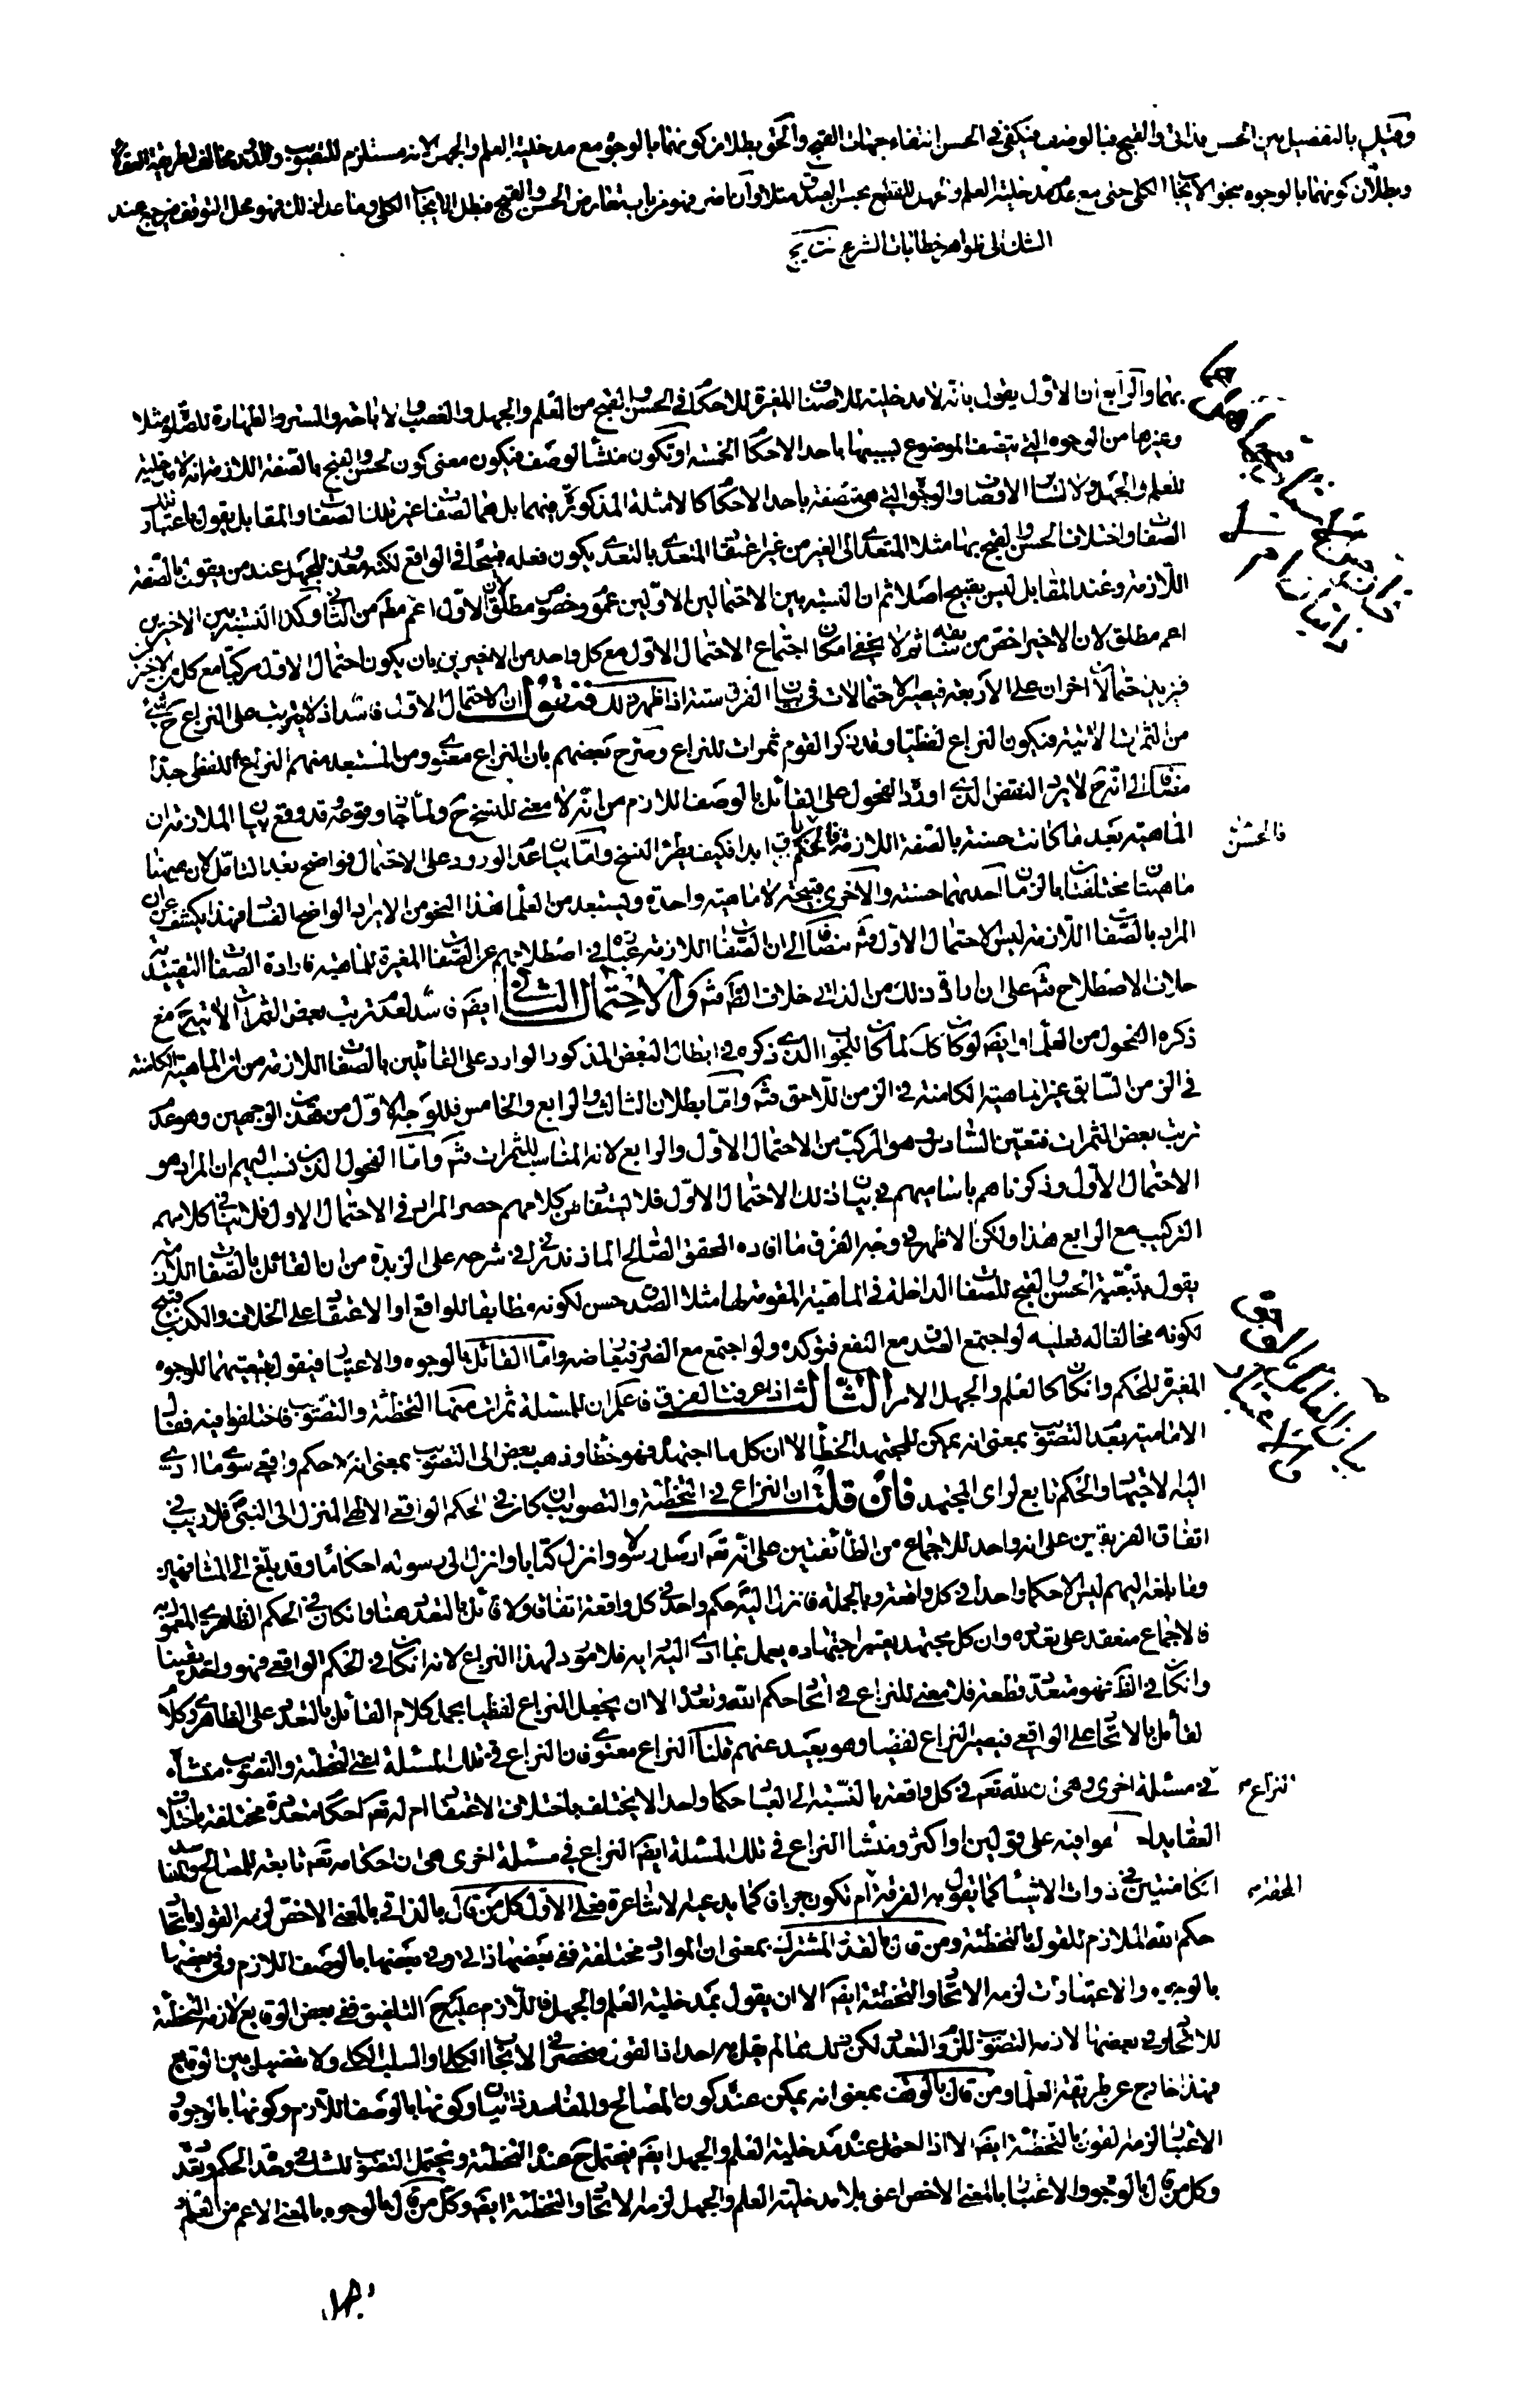 وقيل بالتفصيل بين الحسن فذاتي والقبيح فبالوصف فيكفي في الحسن انتفاء جهات القبح والحق بطلان كونهما بالوجوه مع مدخلية العلم والجهل لانه مستلزم للتصويب
وبطلان كونهما بالوجوه بنحو الايجاب الكلي حتى مع عدم مدخلية العلم والجهل للقطع بحسن الصدق مثلا وان ضر فهو من باب تعارض الحسن والقبح فبطل الايجاب الكلي وما عدا ذلك فهو محل التوقف فيرجع عند
الشك الى ظواهر خطابات الشرع
بهما والرابع ان الاول يقول بانه لا مدخلية للاوصاف المغيرة للاحكام في الحسن والقبح من العلم والجهل والغصب والاباحة والستر والطهارة للصلوة مثلا
وغيرها من الوجوه التي يتصف الموضوع بسببها باحد الاحكام الخمسة او تكون منشأ لوصف فيكون معنى كون الحسن والقبح بالصفة اللازمة انه لا مدخلية
للعلم والجهل ولا لسائر الاوصاف والوجوه التي هي متصفة باحد الاحكام كالامثلة المذكورة فيهما بل هما لصفات غير تلك الصفات والمقابل يقول باعتبار تلك
الصفات واختلاف الحسن والقبح بها مثلا المتعدي الى الغير من غير اعتقاد المتعدي بالتعدي يكون فعله قبيحا في الواقع لكنه معذور للجهل عند من يقول بالصفة
اللازمة وعند المقابل ليس بقبيح اصلا ثم ان النسبة بين الاحتمالين الاولين عموم وخصوص مطلق لان الاول اعم مطلقا من الثاني وكذا النسبة بين الاخيرين
اعم مطلق لان الاخير اخص من سابقه ثم لا يخفى امكان اجتماع الاحتمال الاول مع كل واحد من الاخيرين بان يكون احتمال الاول مركبا مع كل من الاخيرين
فيزيد احتمالان اخران على الاربعة فيصير الاحتمالات في بيان الفرق ستة اذا ظهر ذلك فنقول ان الاحتمال الاول فاسد اذ لا يترتب على النزاع ح شيء
من الثمرات الاتية فيكون النزاع لفظيا وقد ذكر القوم ثمرات للنزاع وصرح بعضهم بان النزاع معنوي ومن المستبعد منهم النزاع اللفظي جدا
مضافا الى انه ح لا يرد النقض الذي اورد الفحول على القائل بالوصف اللازم من انه لا معنى للنسخ ح ولما جاز وقوعه وقد وقع بيان الملازمة ان
الماهية بعد ما كانت حسنة بالصفة اللازمة فالحكم باق ابدا فكيف يطرء النسخ واما بيان عدم الورود على الاحتمال فواضح بعد التامل لان ههنا
فالحسن
ماهيتان مختلفتان بالزمان احدهما حسنة والاخرى قبيحة لا ماهية واحدة ويستبعد من العلماء هذا النحو من الايراد الواضح الفساد فهذا يكشف عن ان
المراد بالصفات اللازمة ليس الاحتمال الاول ثم مضافا الى ان الصفات اللازمة عبارة في اصطلاحهم عن الصفات المغيرة للماهية فارادة الصفات التقييدية
خلاف الاصطلاح ثم على ان ارادة ذلك من الذاتي خلاف الظاهر ثم والاحتمال الثاني ايضا فاسد لعدم ترتب بعض الثمرات الاتية ح مع
ذكره الفحول من العلماء وايضا لو كان كك لما كان للجواب الذي ذكروه في ابطال النقض المذكور الوارد على القائلين بالصفات اللازمة من ان الماهية الكامنة
في الزمن السابق غير الماهية الكامنة في الزمن اللاحق ثم واما بطلان الثالث والرابع والخامس فللوجه الاول من هذين الوجهين وهو عدم
ترتب بعض الثمرات فتعين السادس وهو المركب من الاحتمال الاول والرابع لانه المناسب للثمرات ثم واما الفحول الذين نسب اليهم ان المراد هو
الاحتمال الاول وذكرناهم باساميهم في بيان ذلك الاحتمال الاول فلا يستفاد من كلامهم حصر المراد في الاحتمال الاول فلا ينافي كلامهم
التركيب مع الرابع هذا ولكن الاظهر في وجه الفرق ما افاده المحقق الصالح المازندراني في شرحه على الزبدة من ان القائل بالصفات اللازمة
يقول بتبعية الحسن والقبح للصفات الداخلة في الماهية المقومة لها مثلا الصدق حسن لكونه مطابقا للواقع او الاعتقاد على الخلاف والكذب قبيح
لكونه مخالفا له فعليه لو اجتمع الصدق مع النفع فيؤكده ولو اجتمع مع الضرر فيعارضه واما القائل بالوجوه والاعتبار فيقول بتبعيتهما للوجوه
المغيرة للحكم وان كان كالعلم والجهل الامر الثالث اذا عرفت الفرق فاعلم ان للمسئلة ثمرات منها التخطئة والتصويب فاختلفوا فيه فقال
الامامية بعدم التصويب بمعنى انه يمكن للمجتهد الخطأ لا ان كل ما اجتهد فهو خطأ وذهب بعض الى التصويب بمعنى انه لا حكم واقعي سوى ما ادى
اليه الاجتهاد والحكم تابع لراى المجتهد فان قلت ان النزاع في التخطئة والتصويب ان كان في الحكم الواقعي الالهي المنزل الى النبي فلا ريب في
اتفاق الفريقين على انه واحد للاجماع من الطائفتين على انه تعالى ارسل رسولا وانزل كتابا وانزل الى رسوله احكاما وقد بلغ الى المشافهين
وما بلغه اليهم ليس الا حكما واحدا في كل واقعة وبالجملة فانزال اليه حكم واحد في كل واقعة اتفاقا ولا قائل بالتعدد هنا وان كان في الحكم الظاهري المعمول به
فالاجماع منعقد على تعدده وان كل مجتهد يعتبر اجتهاده يعمل بما ادى اليه رايه فلا مورد لهذا النزاع لانه ان كان في الحكم الواقعي فهو واحد يقينا
وان كان في الظاهري فهو متعدد قطعا فلا معنى للنزاع في اتحاد حكم الله وتعدده الا ان يجعل النزاع لفظيا بحمل كلام القائل بالتعدد على الظاهري وكلام
القائل بالاتحاد على الواقعي فيصير النزاع لفظيا وهو بعيد عنهم قلنا النزاع معنوي فان النزاع في تلك المسئلة اعني التخطئة والتصويب منشأه
في مسئلة اخرى وهي ان لله تعالى في كل واقعة بالنسبة الى العباد حكما واحدا لا يختلف باختلاف الاعتقاد ام له تعالى احكام متعددة مختلفة باختلاف
النزاع
العقايد على قولين او اكثر ومنشأ النزاع في تلك المسئلة ايضا النزاع في مسئلة اخرى هي ان احكامه تعالى تابعة للمصالح والمفاسد
الكامنتين في ذوات الاشياء كما يقول به الفرقة ام تكون جزاف كما يدعيه الاشاعرة فعلى الاول كل من قال بالذاتي بالمعنى الاخص لزمه القول باتحاد
المحقة
حكم الله الملازم للقول بالتخطئة ومن قال بالقدر المشترك بمعنى ان الموارد مختلفة ففي بعضها ذاتي وفي بعضها بالوصف اللازم وفي بعضها
بالوجوه والاعتبارات لزمه الاتحاد والتخطئة ايضا الا ان يقول بمدخلية العلم والجهل فاللازم عليه ح التلفيق ففي بعض الوقايع لازمه التخطئة
للاتحاد وفي بعضها لازمه التصويب للزوم التعدد لكن ذلك مما لم يقل به احد اذ القول منحصر في الايجاب الكلي او السلب الكلي ولا تفصيل بين الوقايع
فهذا خارج عن طريقة العلماء ومن قال بالوقف بمعنى انه يمكن عنده كون المصالح والمفاسد ذاتيا وكونها بالوصف اللازم وكونها بالوجوه
الاعتبار لزمه القول بالتخطئة ايضا الا اذا احتمل عنده مدخلية العلم والجهل ايضا فيحتمل ح عنده التخطئة ويحتمل التصويب للشك في وحدة الحكم وتعدده
وكل من قال بالوجوه والاعتبار بالمعنى الاخص اعني بلا مدخلية العلم والجهل لزمه الاتحاد والتخطئة ايضا وكل من قال بالوجوه بالمعنى الاعم من العلم
والجهل